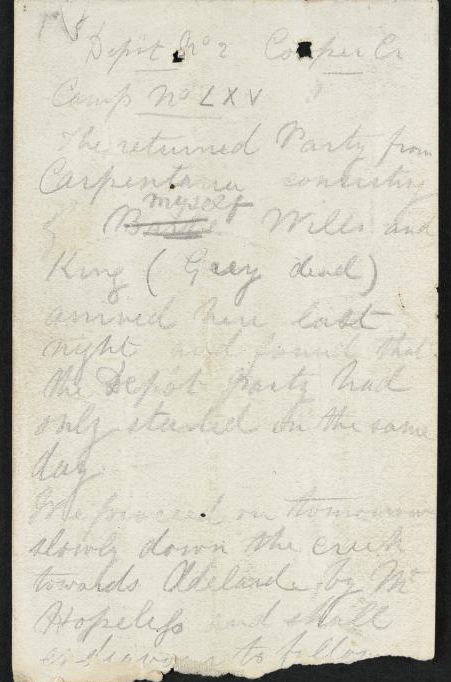 Depôt No 2 Cooper Cr
Camp No LXV
The returned Party from
Carpentaria consisting
of myself Wills and
King (Grey dead)
arrived here last
night and found that
the Depôt party had
only started on the same
day.
We proceed on tomorrow
slowly down the creek
towards Adelaide by Mt
Hopeless and shall
endeavour to follow